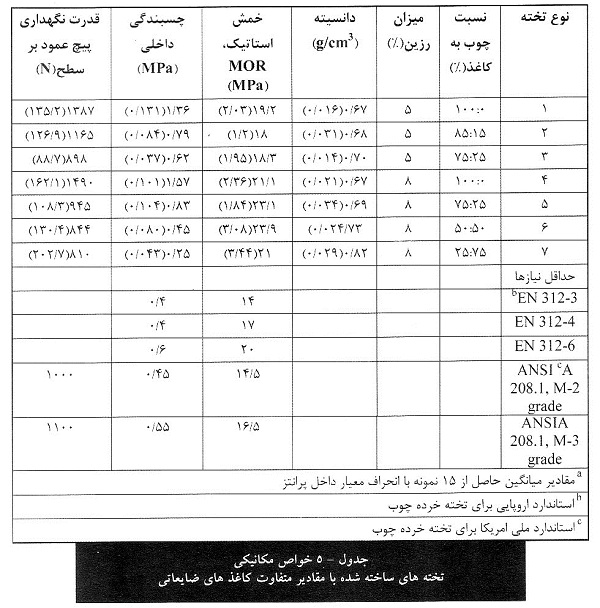 نوع تخته | نسبت چوب به کاغذ(٪) | میزان رزین(٪) | دانسیته (g/cm3) | خمش استاتیک، MOR (MPa) | چسبندگی داخلی (MPa) | قدرت نگهداری پیچ عمود بر سطح(N)
۱ | ۱۰۰:۰ | ۵ | ۰/۶۷(۰/۰۱۶) | ۱۹/۲(۲/۰۳) | ۱/۳۶(۰/۱۳۱) | ۱۳۸۷(۱۳۵/۲)
۲ | ۸۵:۱۵ | ۵ | ۰/۶۸(۰/۰۳۱) | ۱۸(۱/۲) | ۰/۷۹(۰/۰۸۴) | ۱۱۶۵(۱۲۶/۹)
۳ | ۷۵:۲۵ | ۵ | ۰/۷۰(۰/۰۱۴) | ۱۸/۳(۱/۹۵) | ۰/۶۲(۰/۰۳۷) | ۸۹۸(۸۸/۷)
۴ | ۱۰۰:۰ | ۸ | ۰/۶۷(۰/۰۲۱) | ۲۱/۱(۲/۳۶) | ۱/۵۷(۰/۱۰۱) | ۱۴۹۰(۱۶۲/۱)
۵ | ۷۵:۲۵ | ۸ | ۰/۶۹(۰/۰۳۴) | ۲۳/۱(۱/۸۴) | ۰/۸۳(۰/۱۰۴) | ۹۴۵(۱۰۸/۳)
۶ | ۵۰:۵۰ | ۸ | ۰/۰۲۴/۷۳) | ۲۳/۹(۳/۰۸) | ۰/۴۵(۰/۰۸۰) | ۸۴۴(۱۳۰/۴)
۷ | ۲۵:۷۵ | ۸ | ۰/۸۲(۰/۰۲۹) | ۲۱(۳/۴۴) | ۰/۲۵(۰/۰۴۳) | ۸۱۰(۲۰۲/۷)
حداقل نیازها
bEN 312-3 | ۱۴ | ۰/۴
EN 312-4 | ۱۷ | ۰/۴
EN 312-6 | ۲۰ | ۰/۶
ANSI cA 208.1, M-2 grade | ۱۴/۵ | ۰/۴۵ | ۱۰۰۰
ANSIA 208.1, M-3 grade | ۱۶/۵ | ۰/۵۵ | ۱۱۰۰
a مقادیر میانگین حاصل از ۱۵ نمونه با انحراف معیار داخل پرانتز
b استاندارد اروپایی برای تخته خرده چوب
c استاندارد ملی امریکا برای تخته خرده چوب
جدول – ۵ خواص مکانیکی
تخته های ساخته شده با مقادیر متفاوت کاغذ های ضایعاتی